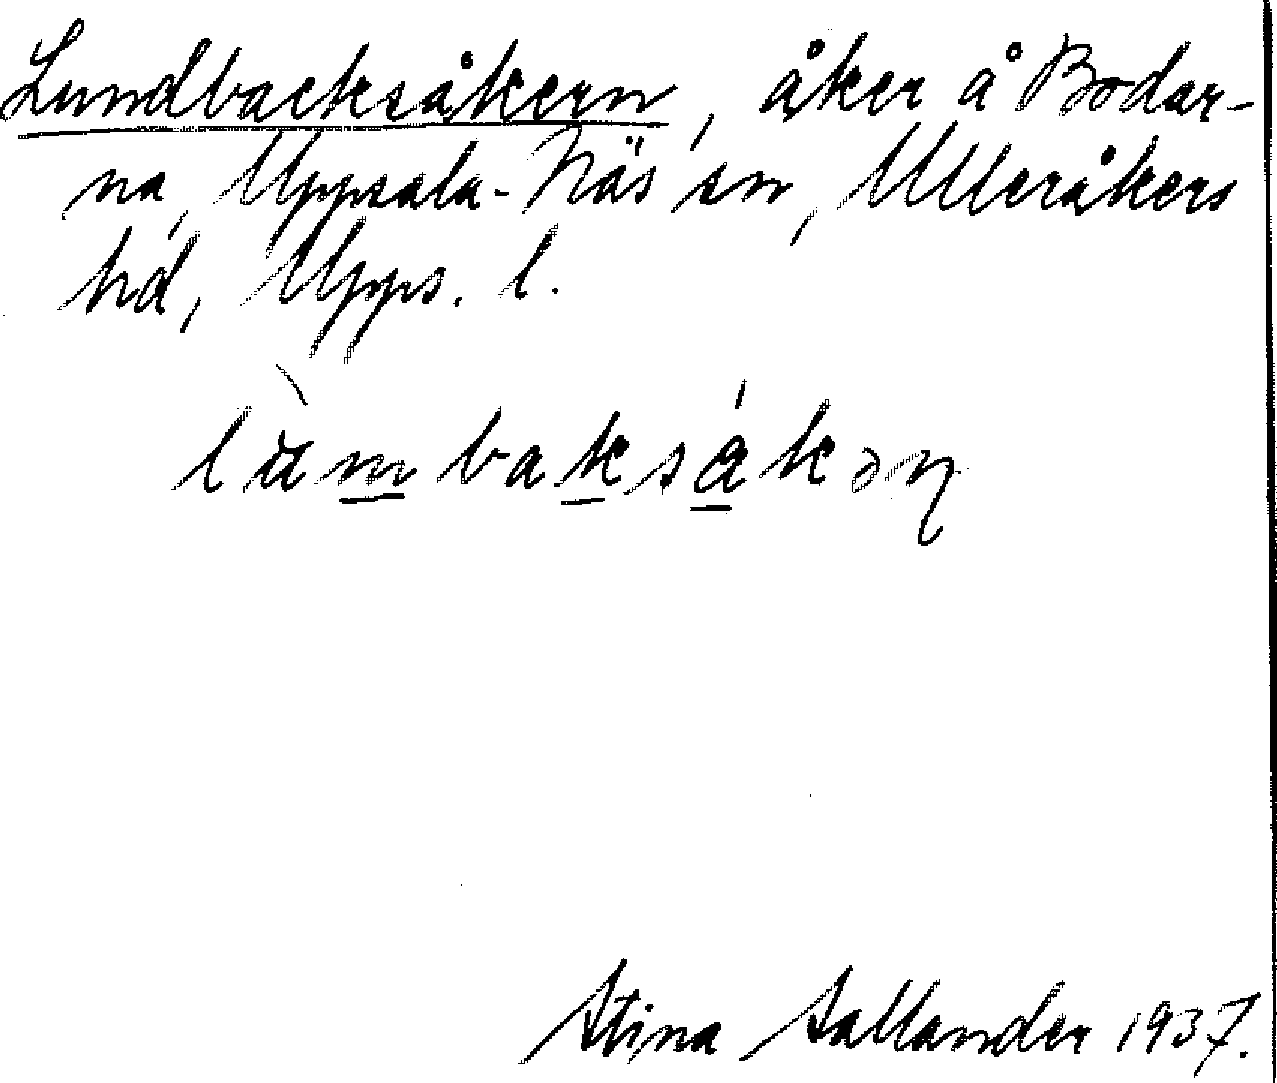 Lundbacksåkern, åker å Bodar-
na, Uppsala-Näs sn, Ulleråkers
hd, Upps. l.
lùmbaksǻkəɳ
Stina Sallander 1937.